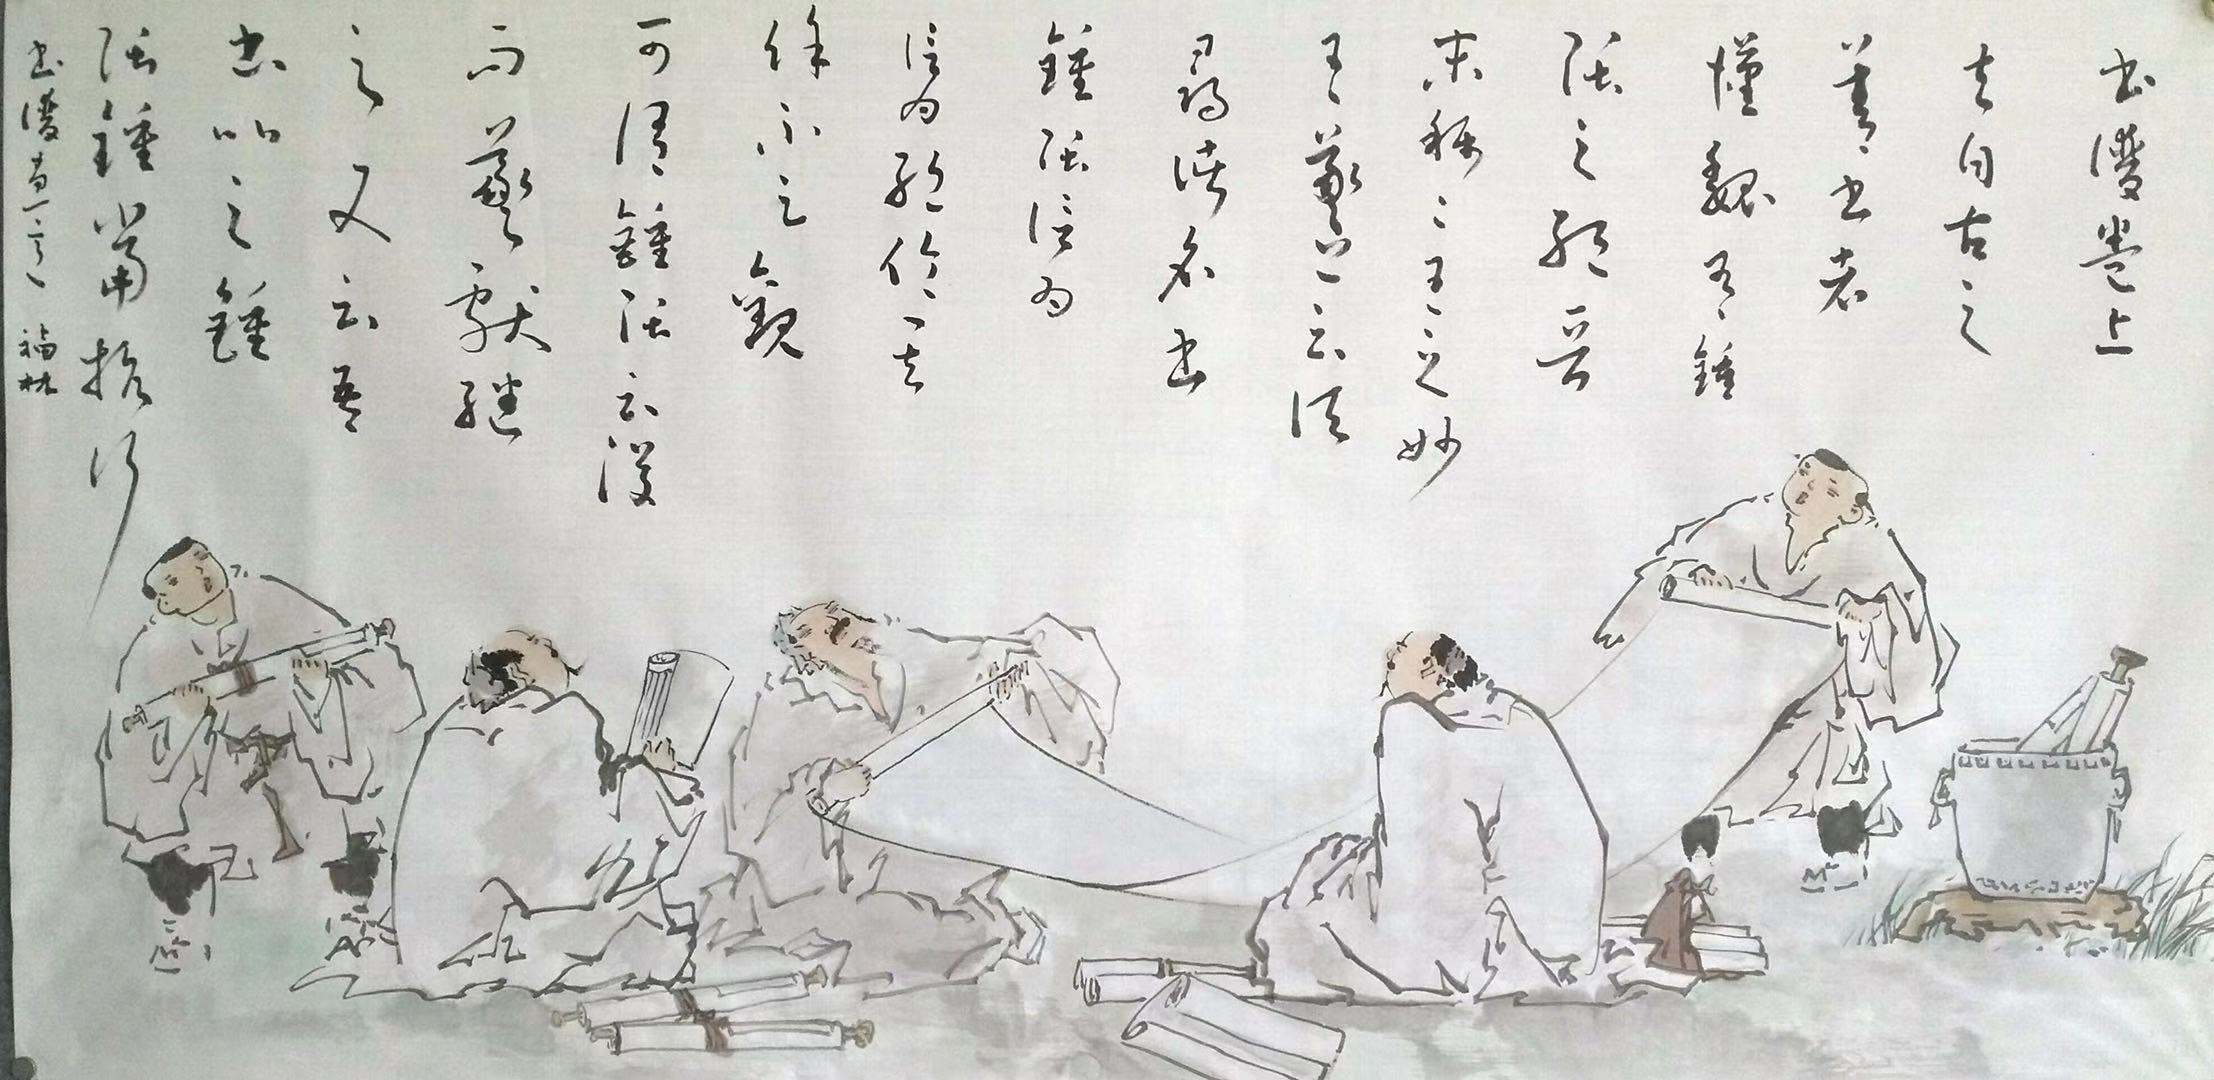 書譜卷上
夫自古之
善書者
漢魏有鍾
張之絕晉
末稱二王之妙
王羲之云頃
尋諸名書
鍾張信為
信為絕倫其
餘不足觀
可謂鍾張云沒
而羲獻繼
之又云吾
書比之鍾
張鍾當抗行
書譜 福林